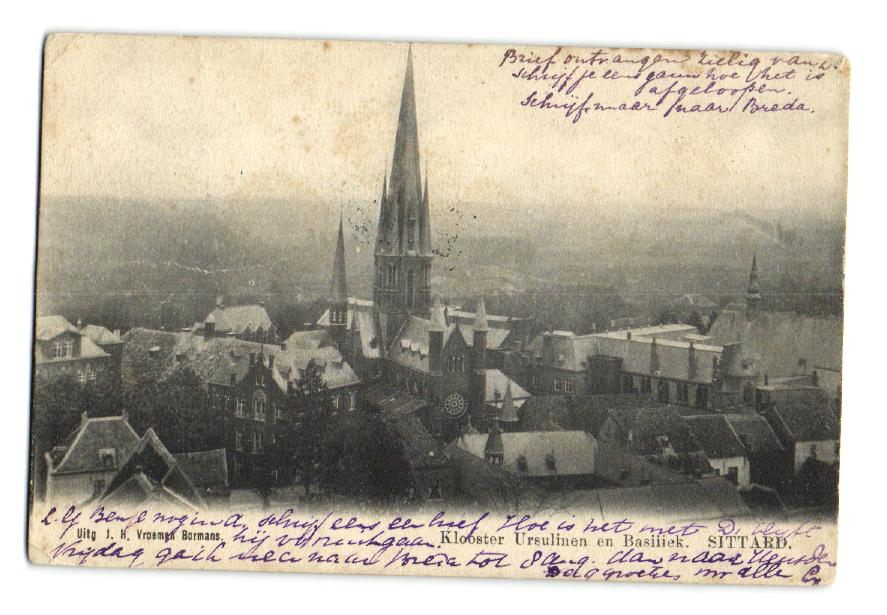 Brief ontvangen zielig van D.
schrijf je eens gauw hoe het is
afgeloopen.
Schrijf maar naar Breda.
schrijf eens een brief Hoe is het met D.
Uitg J. H. Vroemen Bormans.
Klooster Ursulinen en Basiliek. SITTARD.
vrijdag ga ik weer naar Breda tot 8 aug. dan naar
Dag groetjes alle